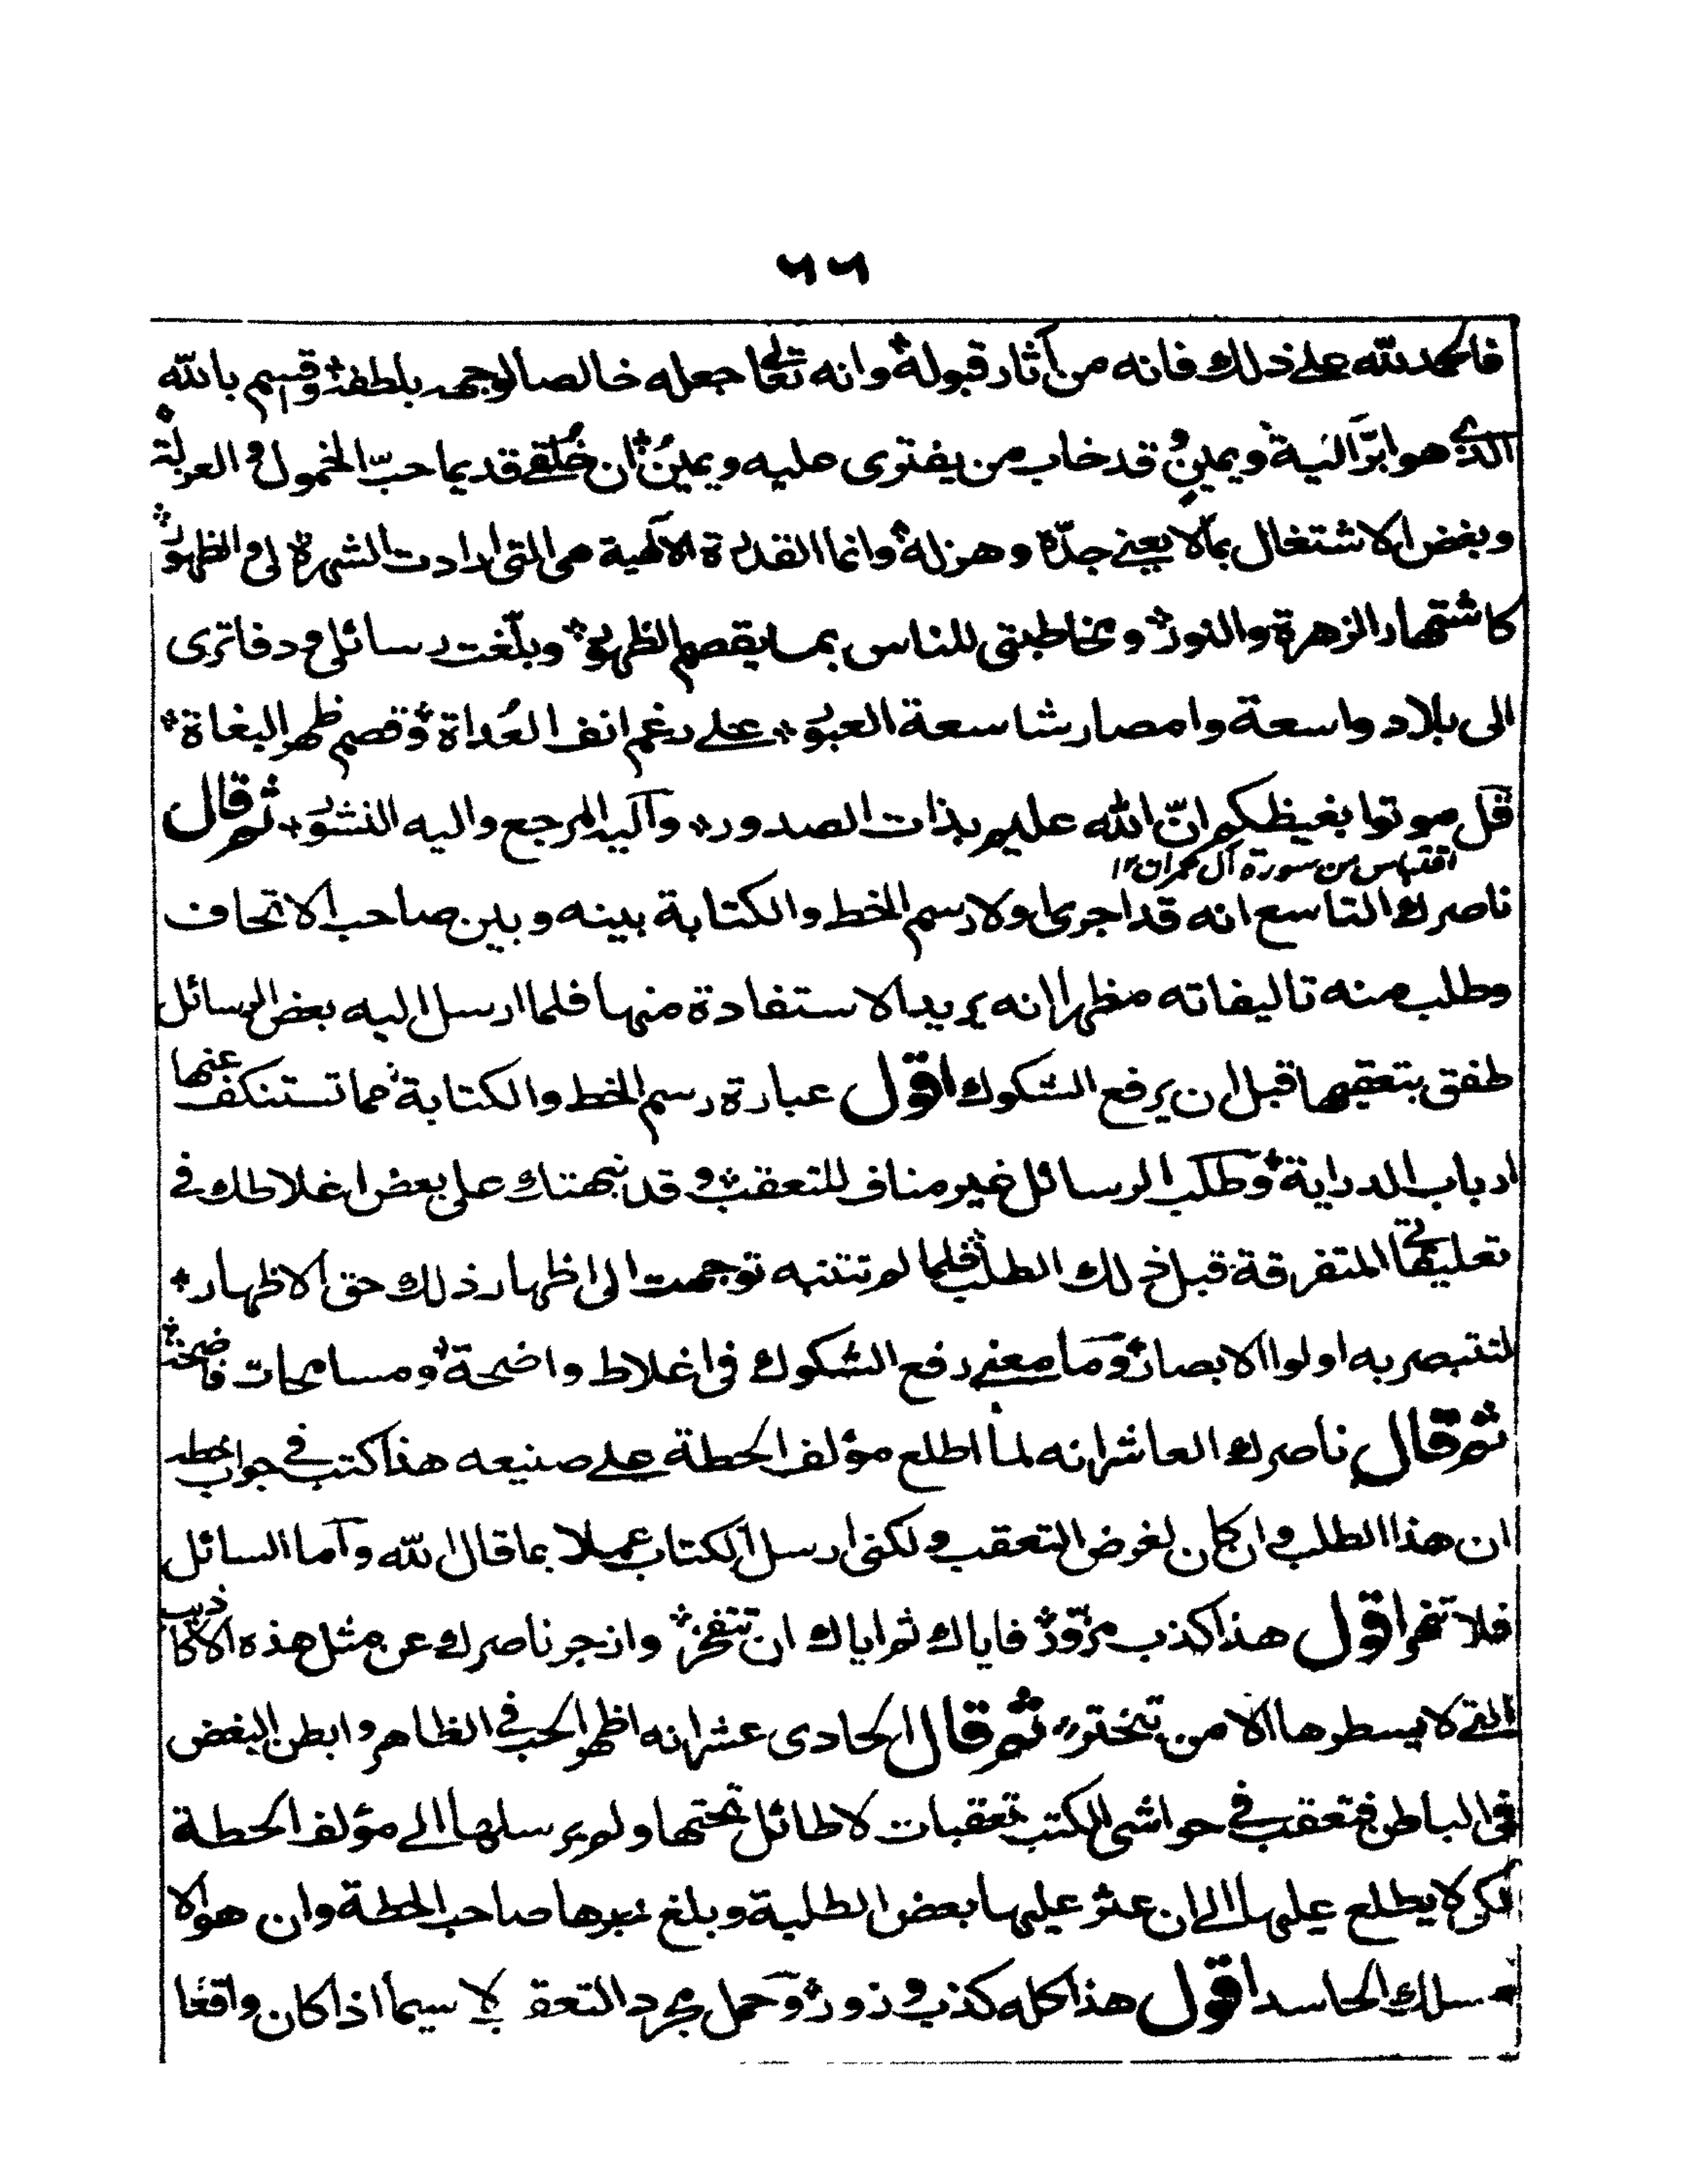 ٦٦
فالحمد لله على ذلك فانه من آثار قبوله وانه تعالى جعله خالصا لوجهه بلطفه وقسم بالله
الذى هو ابرّ الية ويمين قد خاب من يفترى عليه ويمين ان خُلقى قديما حبّ الخمول والعزلة
وبغض الاشتغال بمالا يعنى جدّه وهزله وانما القدرة الالهية هى التى ارادت الشهرة لى والظهور
كاشتهار الزهرة والنور ومخاطبتى للناس بما يقصم الظهور وبلّغت رسائلى ودفاترى
الى بلاد واسعة وامصار شاسعة العبور على رغم انف العُداة وقصم ظهر البغاة
قل موتوا بغيظكم انّ الله عليم بذات الصدور واليه المرجع واليه النشور ثم قال
اقتباس من سورة آل عمران ١٢
ناصرك التاسع انه قد اجرى اولا رسم الخط والكتابة بينه وبين صاحب الاتحاف
وطلب منه تاليفاته مظهرا انه يريد الاستفادة منها فلما ارسل اليه بعض الرسائل
طفق بتعقبها قبل ان يرفع الشكوك اقول عبارة رسم الخط والكتابة مما تستنكف عنها
ارباب الدراية وطلب الرسائل غير مناف للتعقب وقد نبهتك على بعض اغلاطك فى
تعليقاتى المتفرقة قبل ذلك الطلب فلما لم تتنبه توجهت الى اظهار ذلك حق الاظهار
لتتبصر به اولوا الابصار وما معنى رفع الشكوك فى اغلاط واضحة ومسامحات فاضحة
ثم قال ناصرك العاشر انه لما اطلع مؤلف الحطة على صنيعه هذا كتب فى جواب خطه
ان هذا الطلب وان كان لغرض التعقب ولكنى ارسل الكتاب عملا بما قال الله واما السائل
فلا تنهر اقول هذا كذب مزوّر فاياك ثم اياك ان تتفخر وازجر ناصرك عن مثل هذه الاكاذيب
التى لا يسطرها الا من تبختر ثم قال الحادى عشر انه اظهر الحب فى الظاهر وابطن البغض
فى الباطن فتعقب فى حواشى الكتب تعقبات لا طائل تحتها ولم يرسلها الى مؤلف الحطة
لكى لا يطلع عليها الى ان عثر عليها بعض الطلبة وبلغ خبرها صاحب الحطة وان هو الا
مسلك الحاسد اقول هذا كله كذب وزور وحمل مجرد التعقب لا سيما اذا كان واقعًا